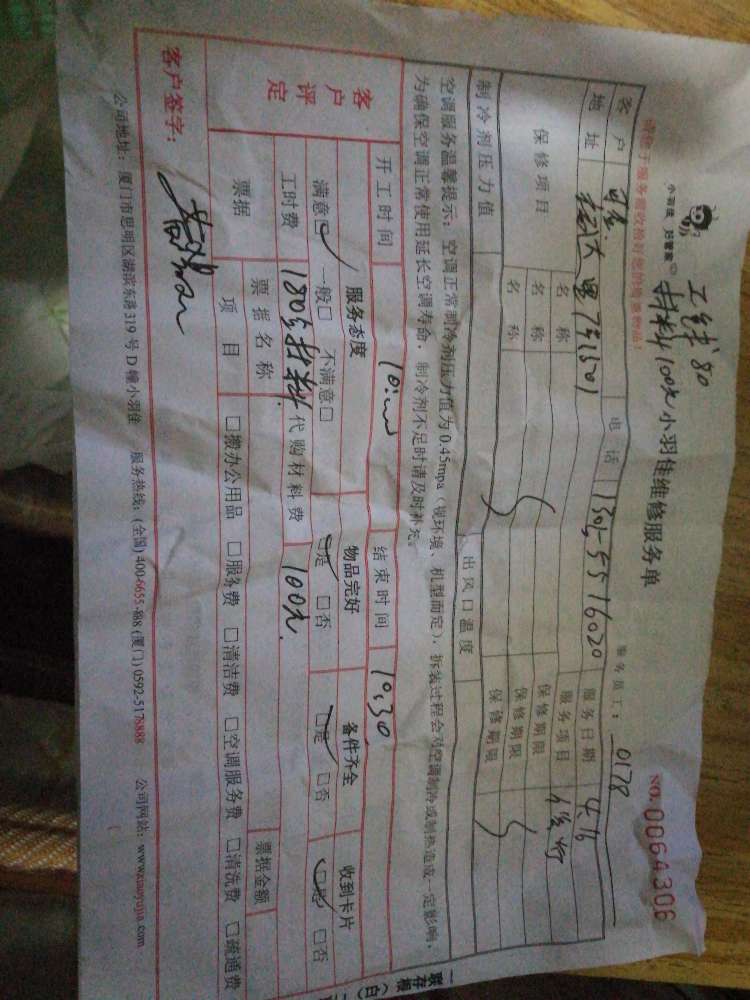 小羽佳 好管家
工钱80
材料100元
小羽佳维修服务单
服务员工：0178
NO.0064306
请便于服务营收拾好您的贵重物品！
客户 电话 服务日期
地址 服务项目
保修项目 名称 保修期限
名称 保修期限
名称 保修期限
制冷剂压力值 出风口温度
空调服务温馨提示：空调正常制冷剂压力值为0.45mpa（视环境、机型而定），拆装过程会对空调制冷或制热造成一定影响，
为确保空调正常使用延长空调寿命，制冷剂不足时请及时补充。
开工时间 结束时间 10:30
客户评定 服务态度 物品完好 备件齐全 收到卡片
满意□ 一般□ 不满意□ □是 □否 □是 □否 □是 □否
工时费 180含材料 代购材料费 100元
票据 票据名称 票据金额
项目 □缴办公用品 □服务费 □清洁费 □空调服务费 □清洗费 □疏通费
客户签字：
公司地址：厦门市思明区湖滨东路319号D幢小羽佳 服务热线：(全国)400-6655-888 (厦门)0592-5178888 公司网站：www.xiaoyujia.com
一联存根（白）